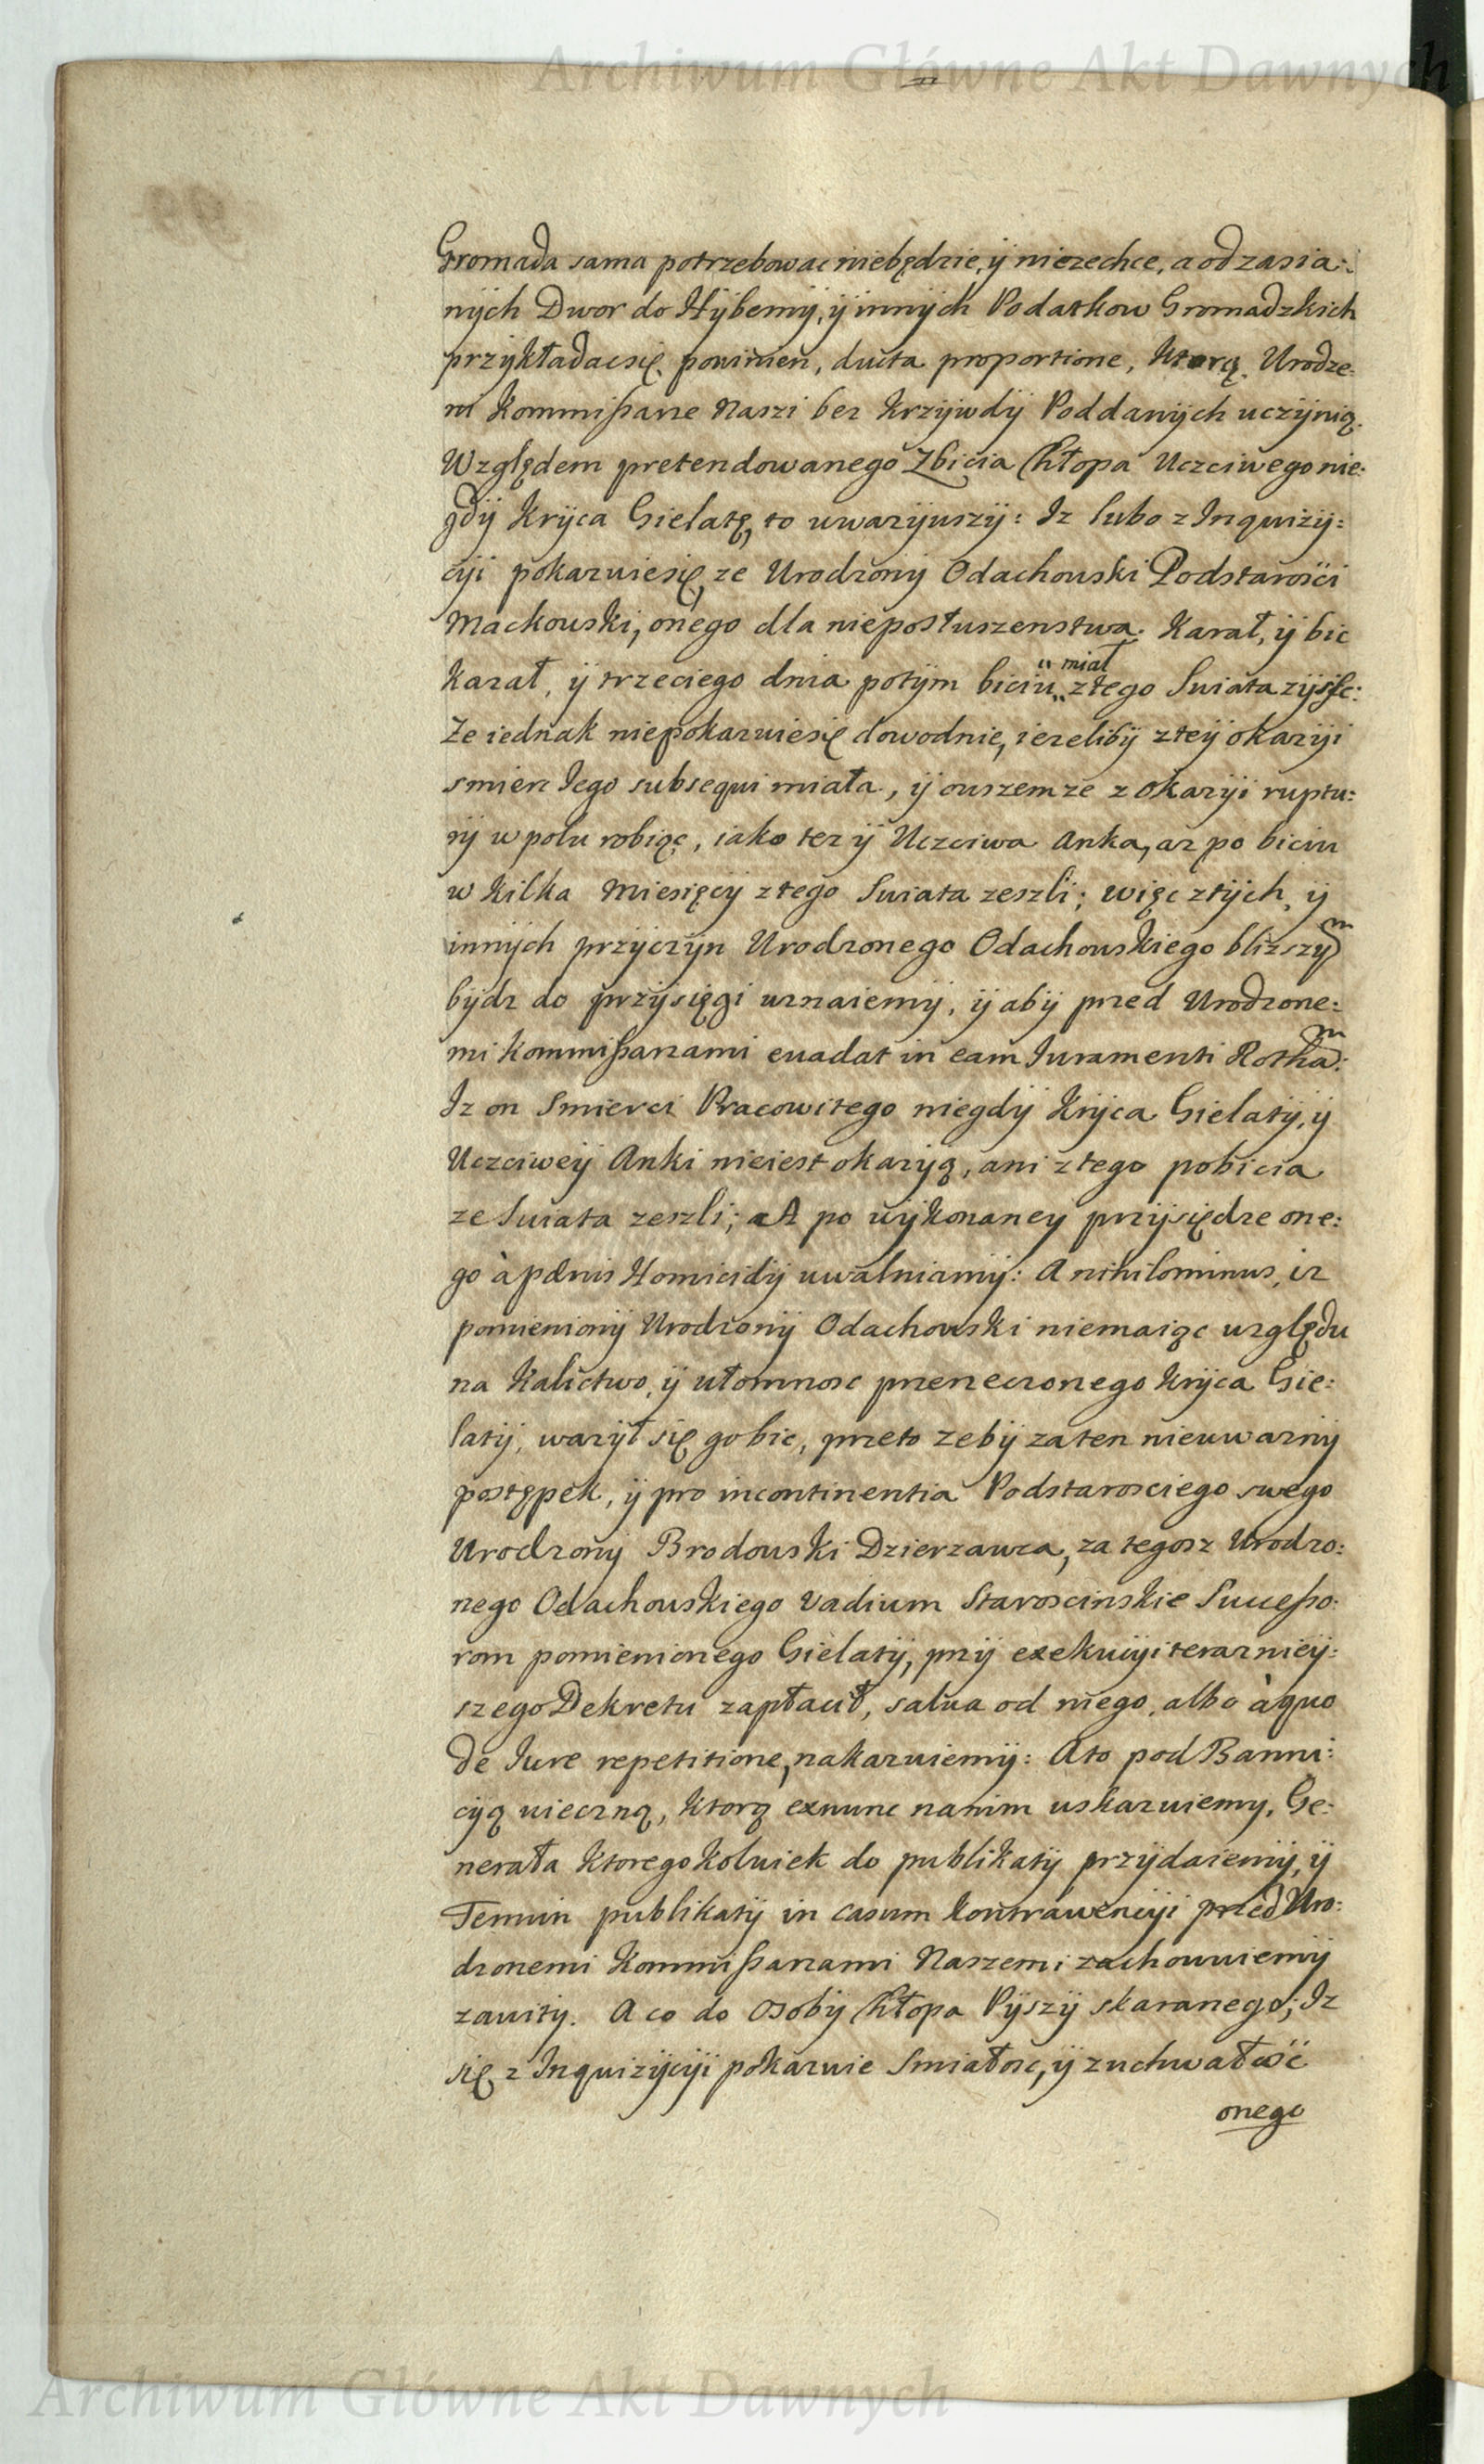 Archiwum Główne Akt Dawnych
Gromada sama potrzebowac niebędzie, ÿ niezechce, a od zasia:
nÿch Dwor do Hÿbernÿ, ÿ innÿch Podatkow Gromadzkich
przÿkładac się powinien, ducta proportione, ktorą Urodze:
ni Kommißarze Naszi bez krzÿwdÿ Poddanÿch uczÿnią.
Względem pretendowanego Zbicia Chłopa Uczciwego nie:
gdÿ Krÿca Gielatę, to uwazÿwszÿ: Iz lubo z Inquizÿ:
cÿi pokazuie się, ze Urodzonÿ Odachowski Podstarości
Mackowski, onego dla nieposłuszenstwa karał, ÿ bic
kazał, ÿ trzeciego dnia potÿm biciu miał ztego Swiata zÿsc:
Ze iednak niepokazuie się dowodnie, iezelibÿ zteÿ okazÿi
smierc Iego subsequi miała, ÿ owszem ze z okazÿi ruptu:
rÿ w polu robiąc, iako tez ÿ Uczciwa Anka, az po biciu
w kilka Miesięcÿ ztego Swiata zeszli; więc ztÿch, ÿ
innÿch przÿczÿn Urodzonego Odachowskiego blizszÿm
bÿdz do przÿsięgi uznaiemÿ, ÿ abÿ przed Urodzone:
mi Kommißarzami euadat in eam Iuramenti Rotham:
Iz on Smierci Pracowitego niegdÿ Krÿca Gielatÿ, ÿ
Uczciweÿ Anki nieiest okazÿą, ani ztego pobicia
ze Swiata zeszli; A po wÿkonaney przÿsiędze one:
go à pænis Homicidÿ uwalniamÿ: A nihilominus, iz
pomienionÿ Urodzonÿ Odachowski niemaiąc względu
na kalictwo, ÿ ułomnosc przerzeczonego Krÿca Gie:
latÿ, wazÿł się go bic, przeto zebÿ za ten nieuwaznÿ
postępek, ÿ pro incontinentia Podstarosciego swego
Urodzonÿ Brodowski Dzierzawca, za tegosz Urodzo:
nego Odachowskiego Vadium Staroscinskie Succeßo:
rom pomienionego Gielatÿ, przÿ exekucÿi terazniey:
szego Dekretu zapłacił, salua od niego, albo à quo
de Iure repetitione, nakazuiemÿ: A to pod Banni:
cÿą wieczną, ktorą exnunc nanim wskazuiemy, Ge:
nerała ktoregokolwiek do publikatÿ przÿdaiemÿ, ÿ
Termin publikatÿ in casum kontrawencÿi przed Uro:
dzonemi Kommißarzami Naszemi zachowuiemÿ
zawitÿ. A co do Osobÿ Chłopa Pÿszÿ skaranego; Iz
się z Inquizÿcÿi pokazuie Smiałosc, ÿ zuchwałość
onego
Archiwum Główne Akt Dawnych